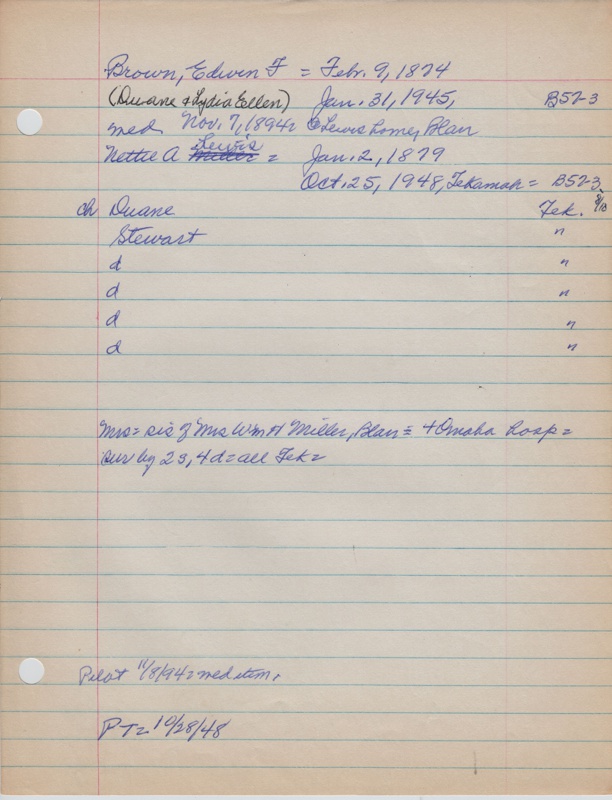 Brown, Edwin F = Febr. 9, 1874
(Duane & Lydia Ellen) Jan. 31, 1945, B52-3
med Nov. 7, 1894 = @ Lewis home, Blair
Nettie A Miller Lewis = Jan. 2, 1879
Oct. 25, 1948, Tekamah = B52-3
ch Duane Tek.
Stewart "
d "
d "
d "
d "
Mrs = sis of Mrs Wm H Miller, Blair = + Omaha hosp =
sur by 2 s, 4 d = all Tek =
Pilot 11/8/94 = med item.
PT = 10/28/48